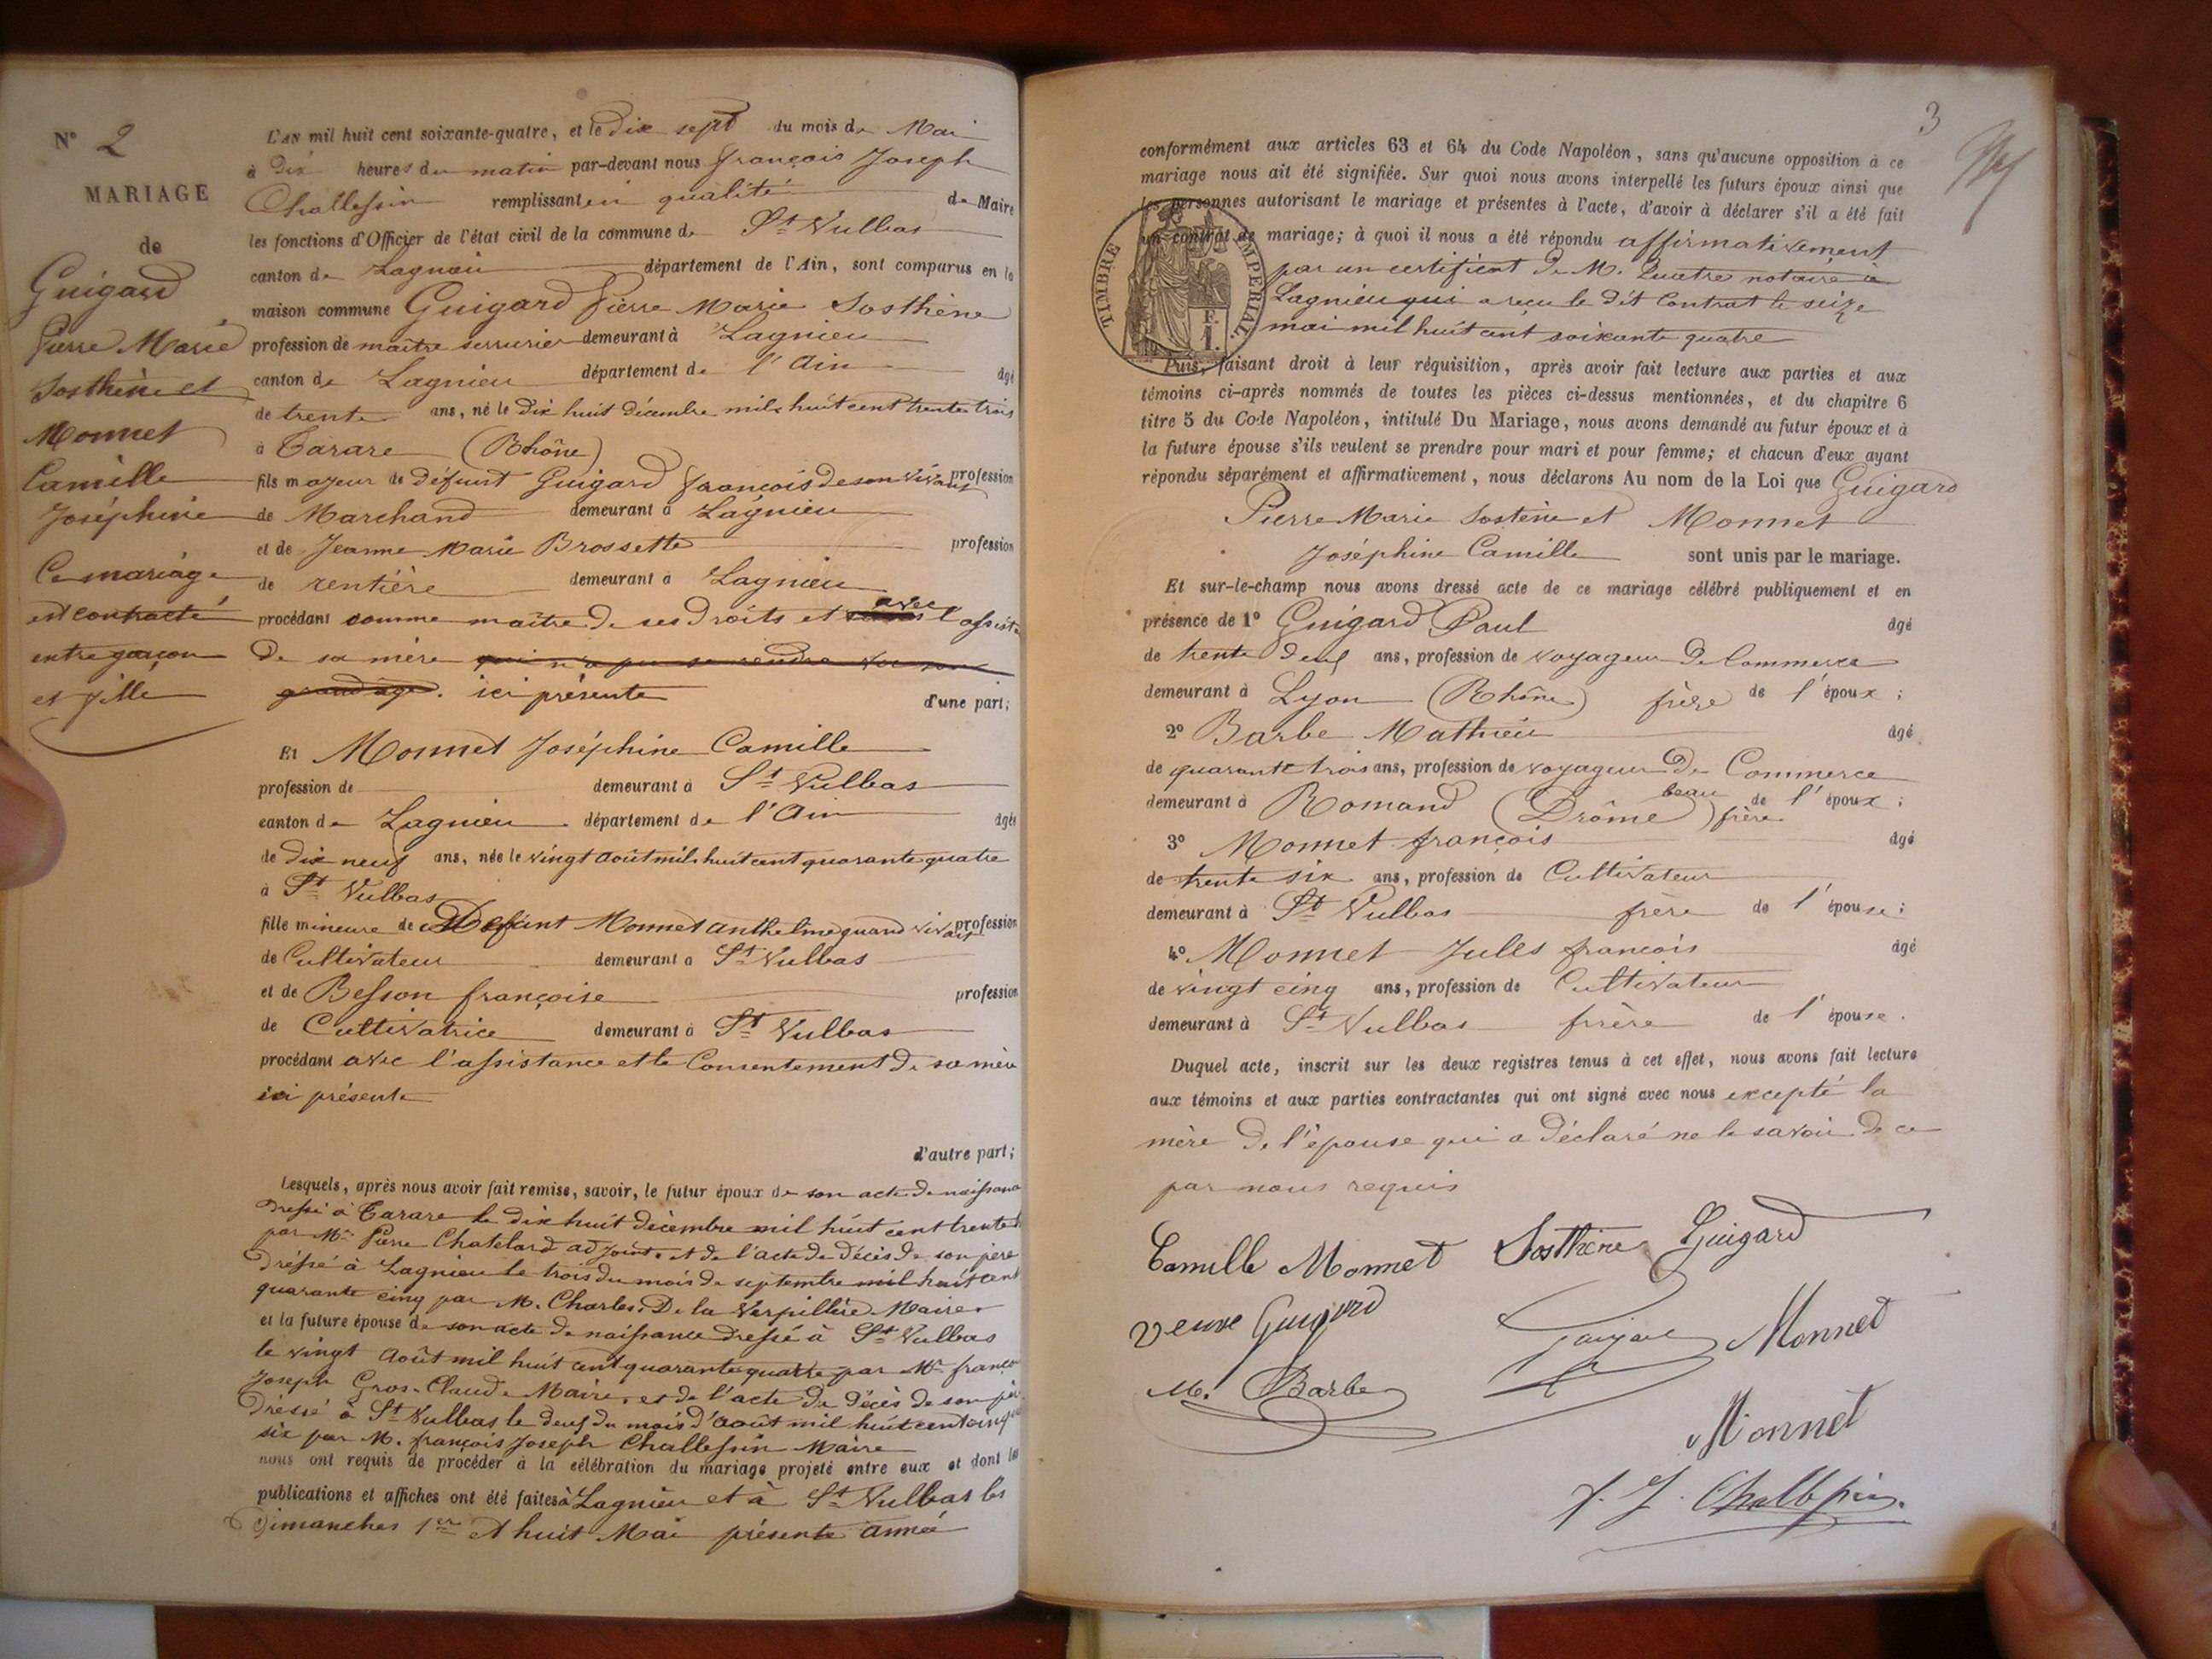 N° 2
MARIAGE
de
Guigard
Pierre Marie
Sosthène et
Monnet
Camille
Joséphine
Ce mariage
est contracté
entre garçon
et fille
L'AN mil huit cent soixante-quatre, et le dix sept du mois de Mai
à Dix heures du matin par-devant nous François Joseph
Challessin remplissant en qualité de Maire
les fonctions d'Officier de l'état civil de la commune de St Vulbas
canton de Lagnieu département de l'Ain, sont comparus en la
maison commune Guigard Pierre Marie Sosthène
profession de maître serrurier demeurant à Lagnieu
canton de Lagnieu département de l'Ain âgé
de trente ans, né le Dix huit décembre mil huit cent trente trois
à Tarare (Rhône)
fils majeur de défunt Guigard François de son vivant profession
de Marchand demeurant à Lagnieu
et de Jeanne Marie Brossette profession
de rentière demeurant à Lagnieu
procédant comme maître de ses droits et avec l'assist
de sa mère qui n'a pu se rendre vu son
grand age. ici présente d'une part;
Et Monnet Joséphine Camille
profession de demeurant à St Vulbas
canton de Lagnieu département de l'Ain âgée
de Dix neuf ans, née le vingt août mil huit cent quarante quatre
à St Vulbas
fille mineure de Defunt Monnet Anthelme quand vivait profession
de Cultivateur demeurant à St Vulbas
et de Besson françoise profession
de Cultivatrice demeurant à St Vulbas
procédant avec l'assistance et le Consentement de sa mère
ici présente
d'autre part;
Lesquels, après nous avoir fait remise, savoir, le futur époux de son acte de naissance
dressé à Tarare le dix huit décembre mil huit cent trente
par Mr Pierre Chatelard adjoint et de l'acte de décès de son père
Dréssé à Lagnieu le trois du mois de septembre mil huit cent
quarante cinq par M. Charles De la Verpillière Maire
et la future épouse de son acte de naissance dressé à St Vulbas
le vingt Août mil huit cent quarante quatre par Mr franço
Joseph Gros-Claude Maire et de l'acte de décès de son pèr
Dréssé à St Vulbas le deux du mois d'août mil huit cent cinq
six par M. françois Joseph Challessin Maire
nous ont requis de procéder à la célébration du mariage projeté entre eux et dont les
publications et affiches ont été faites à Lagnieu et à St Vulbas les
Dimanches 1er et huit Mai présente année
3
conformément aux articles 63 et 64 du Code Napoléon, sans qu'aucune opposition à ce
mariage nous ait été signifiée. Sur quoi nous avons interpellé les futurs époux ainsi que
les personnes autorisant le mariage et présentes à l'acte, d'avoir à déclarer s'il a été fait
un contrat de mariage; à quoi il nous a été répondu affirmativement
par un certificat de M. Quatre notaire à
Lagnieu qui a reçu le dit Contrat le seize
mai mil huit cent soixante quatre
TIMBRE IMPERIAL.
F.
1.
Puis, faisant droit à leur réquisition, après avoir fait lecture aux parties et aux
témoins ci-après nommés de toutes les pièces ci-dessus mentionnées, et du chapitre 6
titre 5 du Code Napoléon, intitulé Du Mariage, nous avons demandé au futur époux et à
la future épouse s'ils veulent se prendre pour mari et pour femme; et chacun d'eux ayant
répondu séparément et affirmativement, nous déclarons Au nom de la Loi que Guigard
Pierre Marie Sostène et Monnet
Joséphine Camille sont unis par le mariage.
Et sur-le-champ nous avons dressé acte de ce mariage célébré publiquement et en
présence de 1° Guigard Paul âgé
de trente deux ans, profession de voyageur De Commerce
demeurant à Lyon (Rhône) frère de l'époux;
2° Barbe Mathieu âgé
de quarante trois ans, profession de voyageur De Commerce
demeurant à Romand (Drôme) beau frère de l'époux;
3° Monnet françois âgé
de trente six ans, profession de Cultivateur
demeurant à St Vulbas frère de l'épouse;
4° Monnet Jules françois âgé
de vingt cinq ans, profession de Cultivateur
demeurant à St Vulbas frère de l'épouse.
Duquel acte, inscrit sur les deux registres tenus à cet effet, nous avons fait lecture
aux témoins et aux parties contractantes qui ont signé avec nous excepté la
mère de l'épouse qui a déclaré ne le savoir de ce
par nous requis
Camille Monnet Sosthène Guigard
veuve Guigard Guigard Monnet
M. Barbe
Monnet
f. J. Challessin.